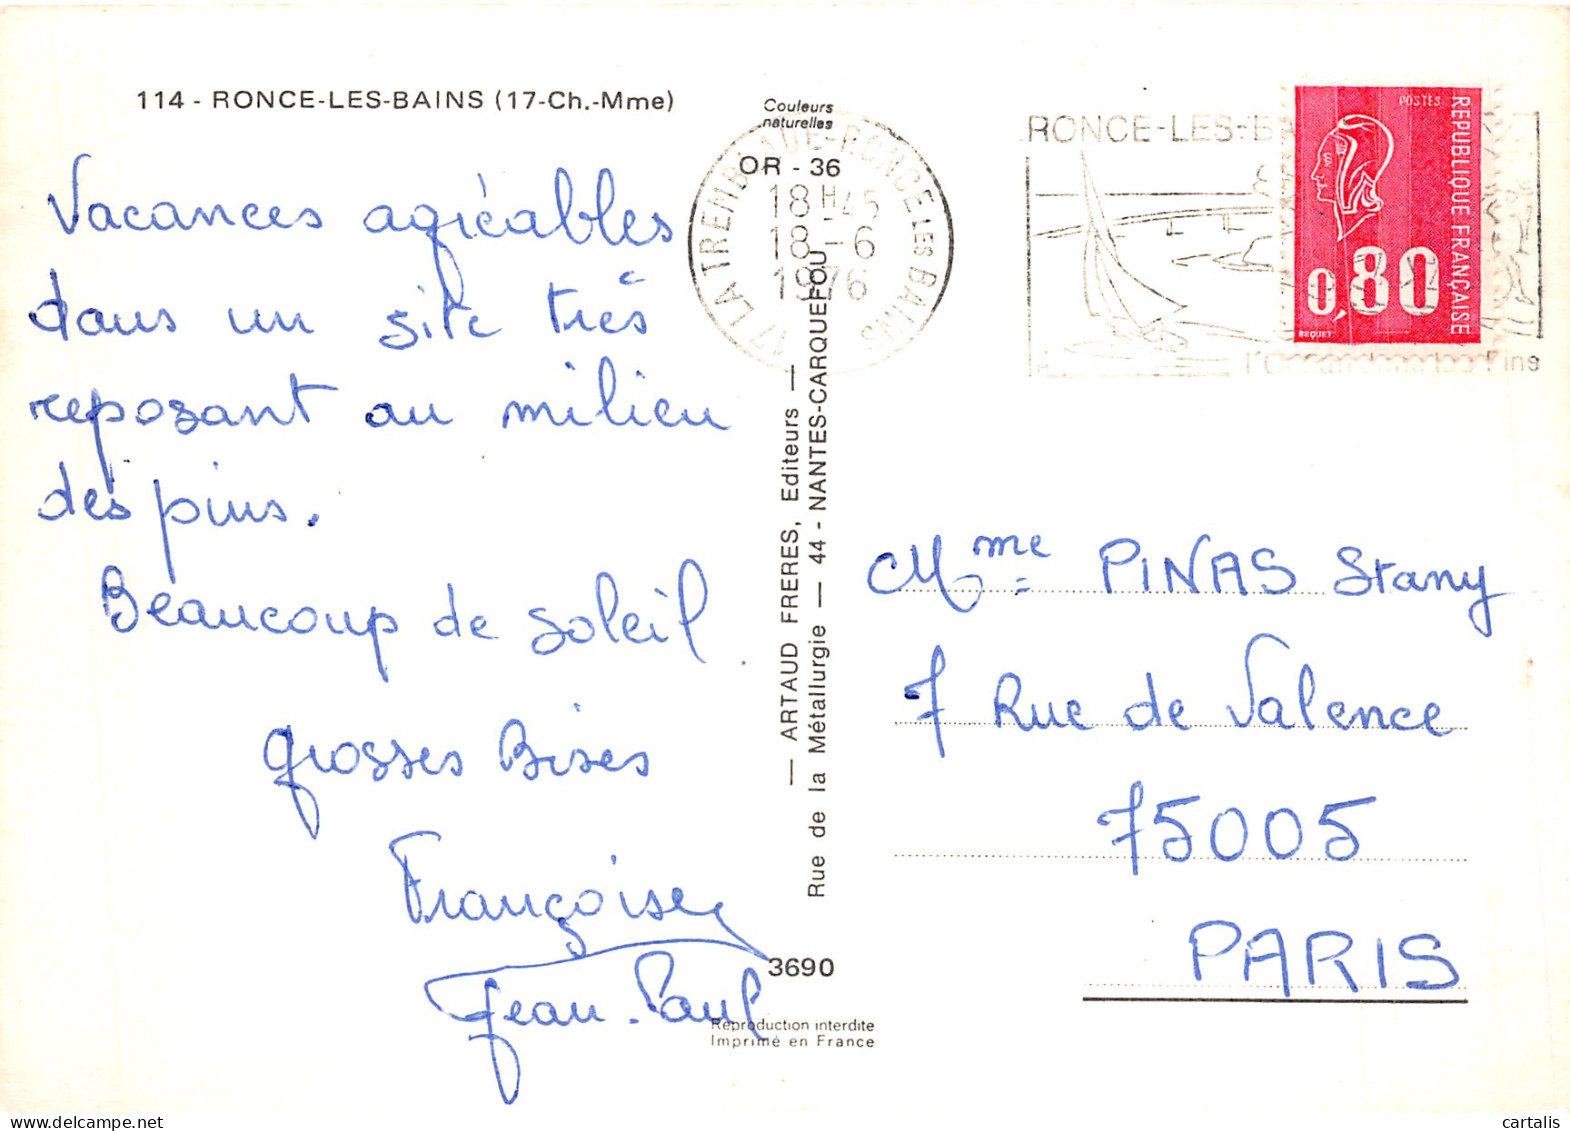 114 - RONCE-LES-BAINS (17-Ch.-Mme)
Couleurs
naturelles
OR - 36
Vacances agréables
dans un site très
reposant au milieu
des pins.
Beaucoup de soleil.
grosses Bises
Françoise
Jean-Paul
— ARTAUD FRERES, Editeurs —
Rue de la Métallurgie — 44 - NANTES-CARQUEFOU
3690
Reproduction interdite
Imprimé en France
17 LA TREMBLADE-RONCE LES BAINS
18H45
18-6
1976
RONCE-LES-BA
POSTES
REPUBLIQUE FRANÇAISE
0,80
BEQUET
Mme PINAS Stany
7 Rue de Valence
75005
PARIS
cartalis